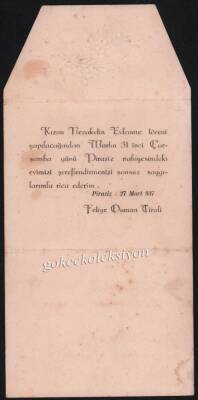 Kızım Nezaketin Evlenme töreni
yapılacağından Martın 31 inci Çar-
şamba günü Piraziz nahiyesindeki
evimizi şereflendirmenizi sonsuz saygı-
larımla rica ederim.
Piraziz : 27 Mart 937
Feliye Osman Tirali
gokcekoleksiyon